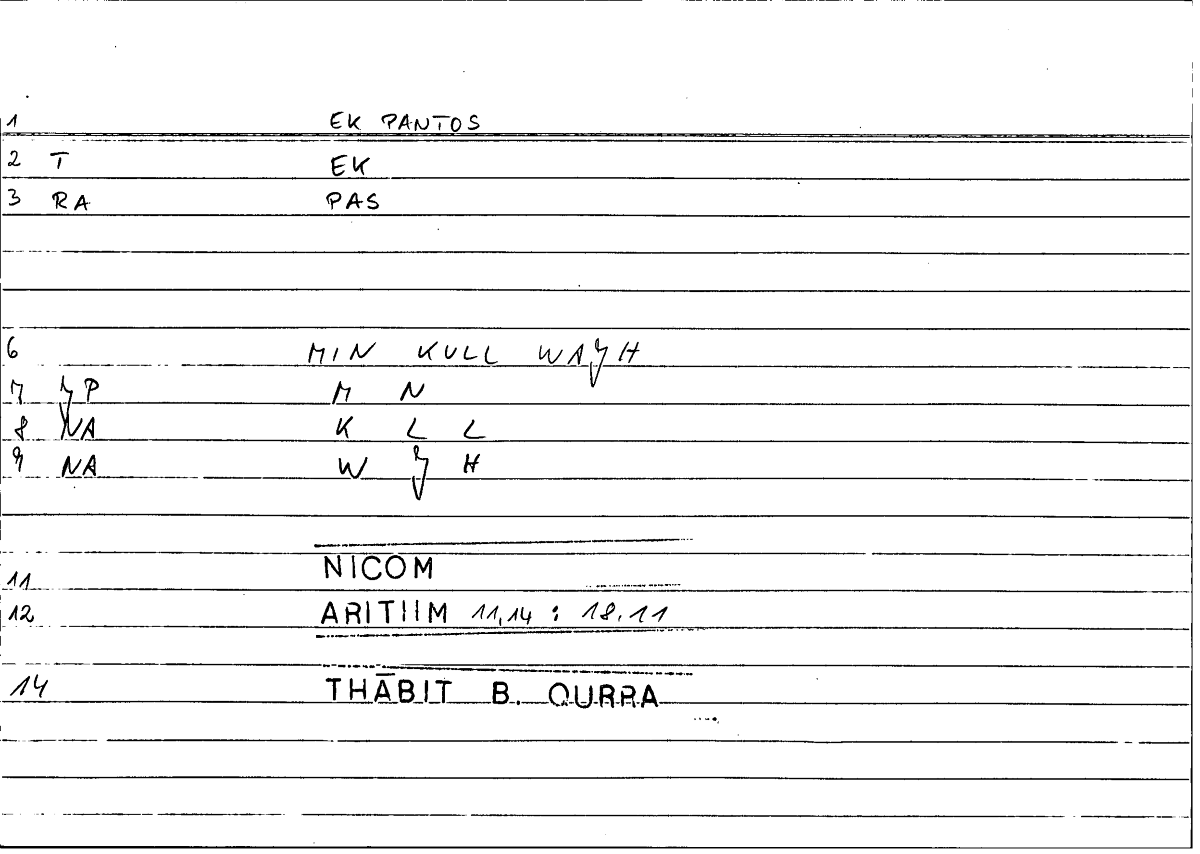 1 EK PANTOS
2 T EK
3 RA PAS
6 MIN KULL WAJH
7 JP M N
8 NA K L L
9 NA W J H
11 NICOM
12 ARITIIM 11,14 : 18.11
14 THĀBIT B. QURRA